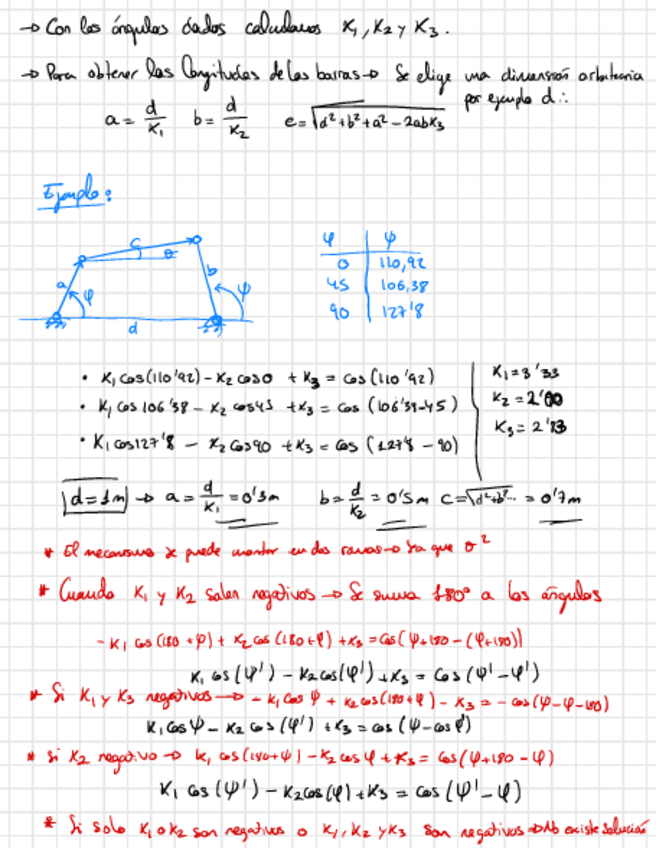 → Con los ángulos dados calculamos K₁, K₂ y K₃.
→ Para obtener las longitudes de las barras → Se elige una dimensión arbitraria
por ejemplo d:
a = d/K₁ b = d/K₂ c = √(d²+b²+a²-2abK₃)
Ejemplo:
c
θ
a
φ
b
ψ
d
φ | ψ
0 | 110,92
45 | 106,38
90 | 127'8
• K₁ cos(110'92) - K₂ cos0 + K₃ = cos(110'92)
• K₁ cos 106'38 - K₂ cos45 + K₃ = cos (106'38-45)
• K₁ cos127'8 - K₂ cos90 + K₃ = cos (127'8 - 90)
K₁ = 3'33
K₂ = 2'00
K₃ = 2'13
d = 1m → a = d/K₁ = 0'3m b = d/K₂ = 0'5m c = √(d²+b²... = 0'7m
* El mecanismo se puede montar en dos ramas → Ya que σ²
* Cuando K₁ y K₂ salen negativos → Se suma 180° a los ángulos
- K₁ cos (180 + ψ) + K₂ cos (180+φ) + K₃ = cos(ψ+180 - (φ+180))
K₁ cos (ψ') - K₂ cos(φ') + K₃ = cos (ψ' - φ')
* Si K₁ y K₃ negativos → - K₁ cos ψ + K₂ cos(180+φ) - K₃ = - cos (ψ-φ-180)
K₁ cos ψ - K₂ cos (φ') + K₃ = cos (ψ - cos φ')
* Si K₂ negativo → K₁ cos(180+ψ) - K₂ cos φ + K₃ = cos(ψ+180 - φ)
K₁ cos (ψ') - K₂ cos(φ) + K₃ = cos (ψ' - φ)
* Si solo K₁ o K₂ son negativos o K₁, K₂ y K₃ son negativos → No existe solución